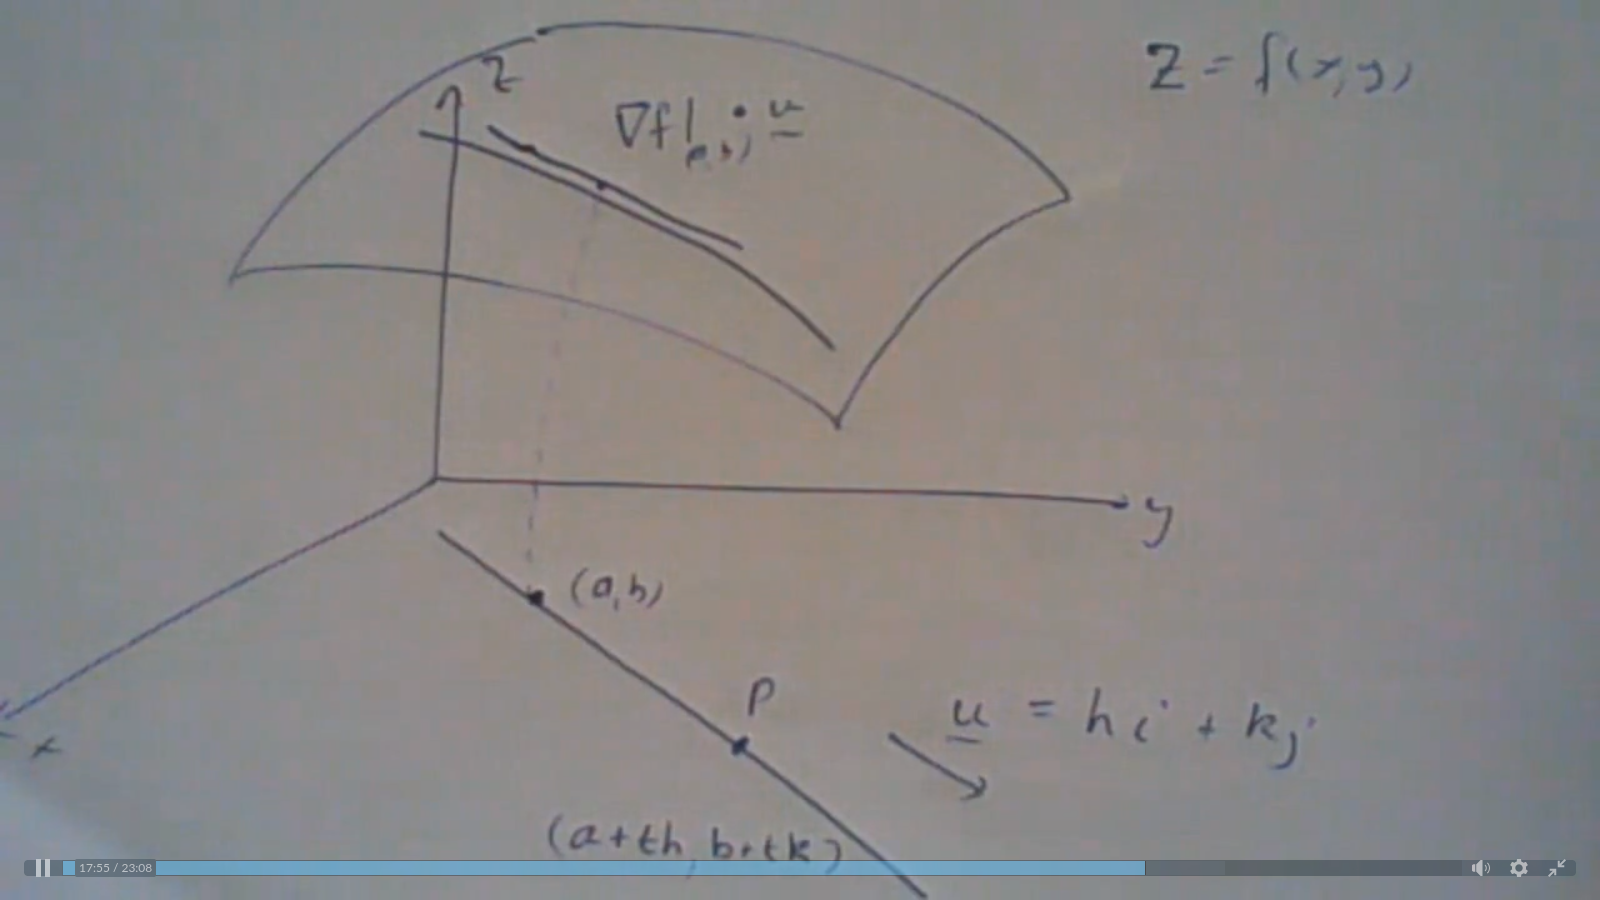 z = f(x,y)
z
∇f|(a,b) • u
y
(a,b)
P
u = hi + kj
x
(a+th, b+tk)
17:55 / 23:08